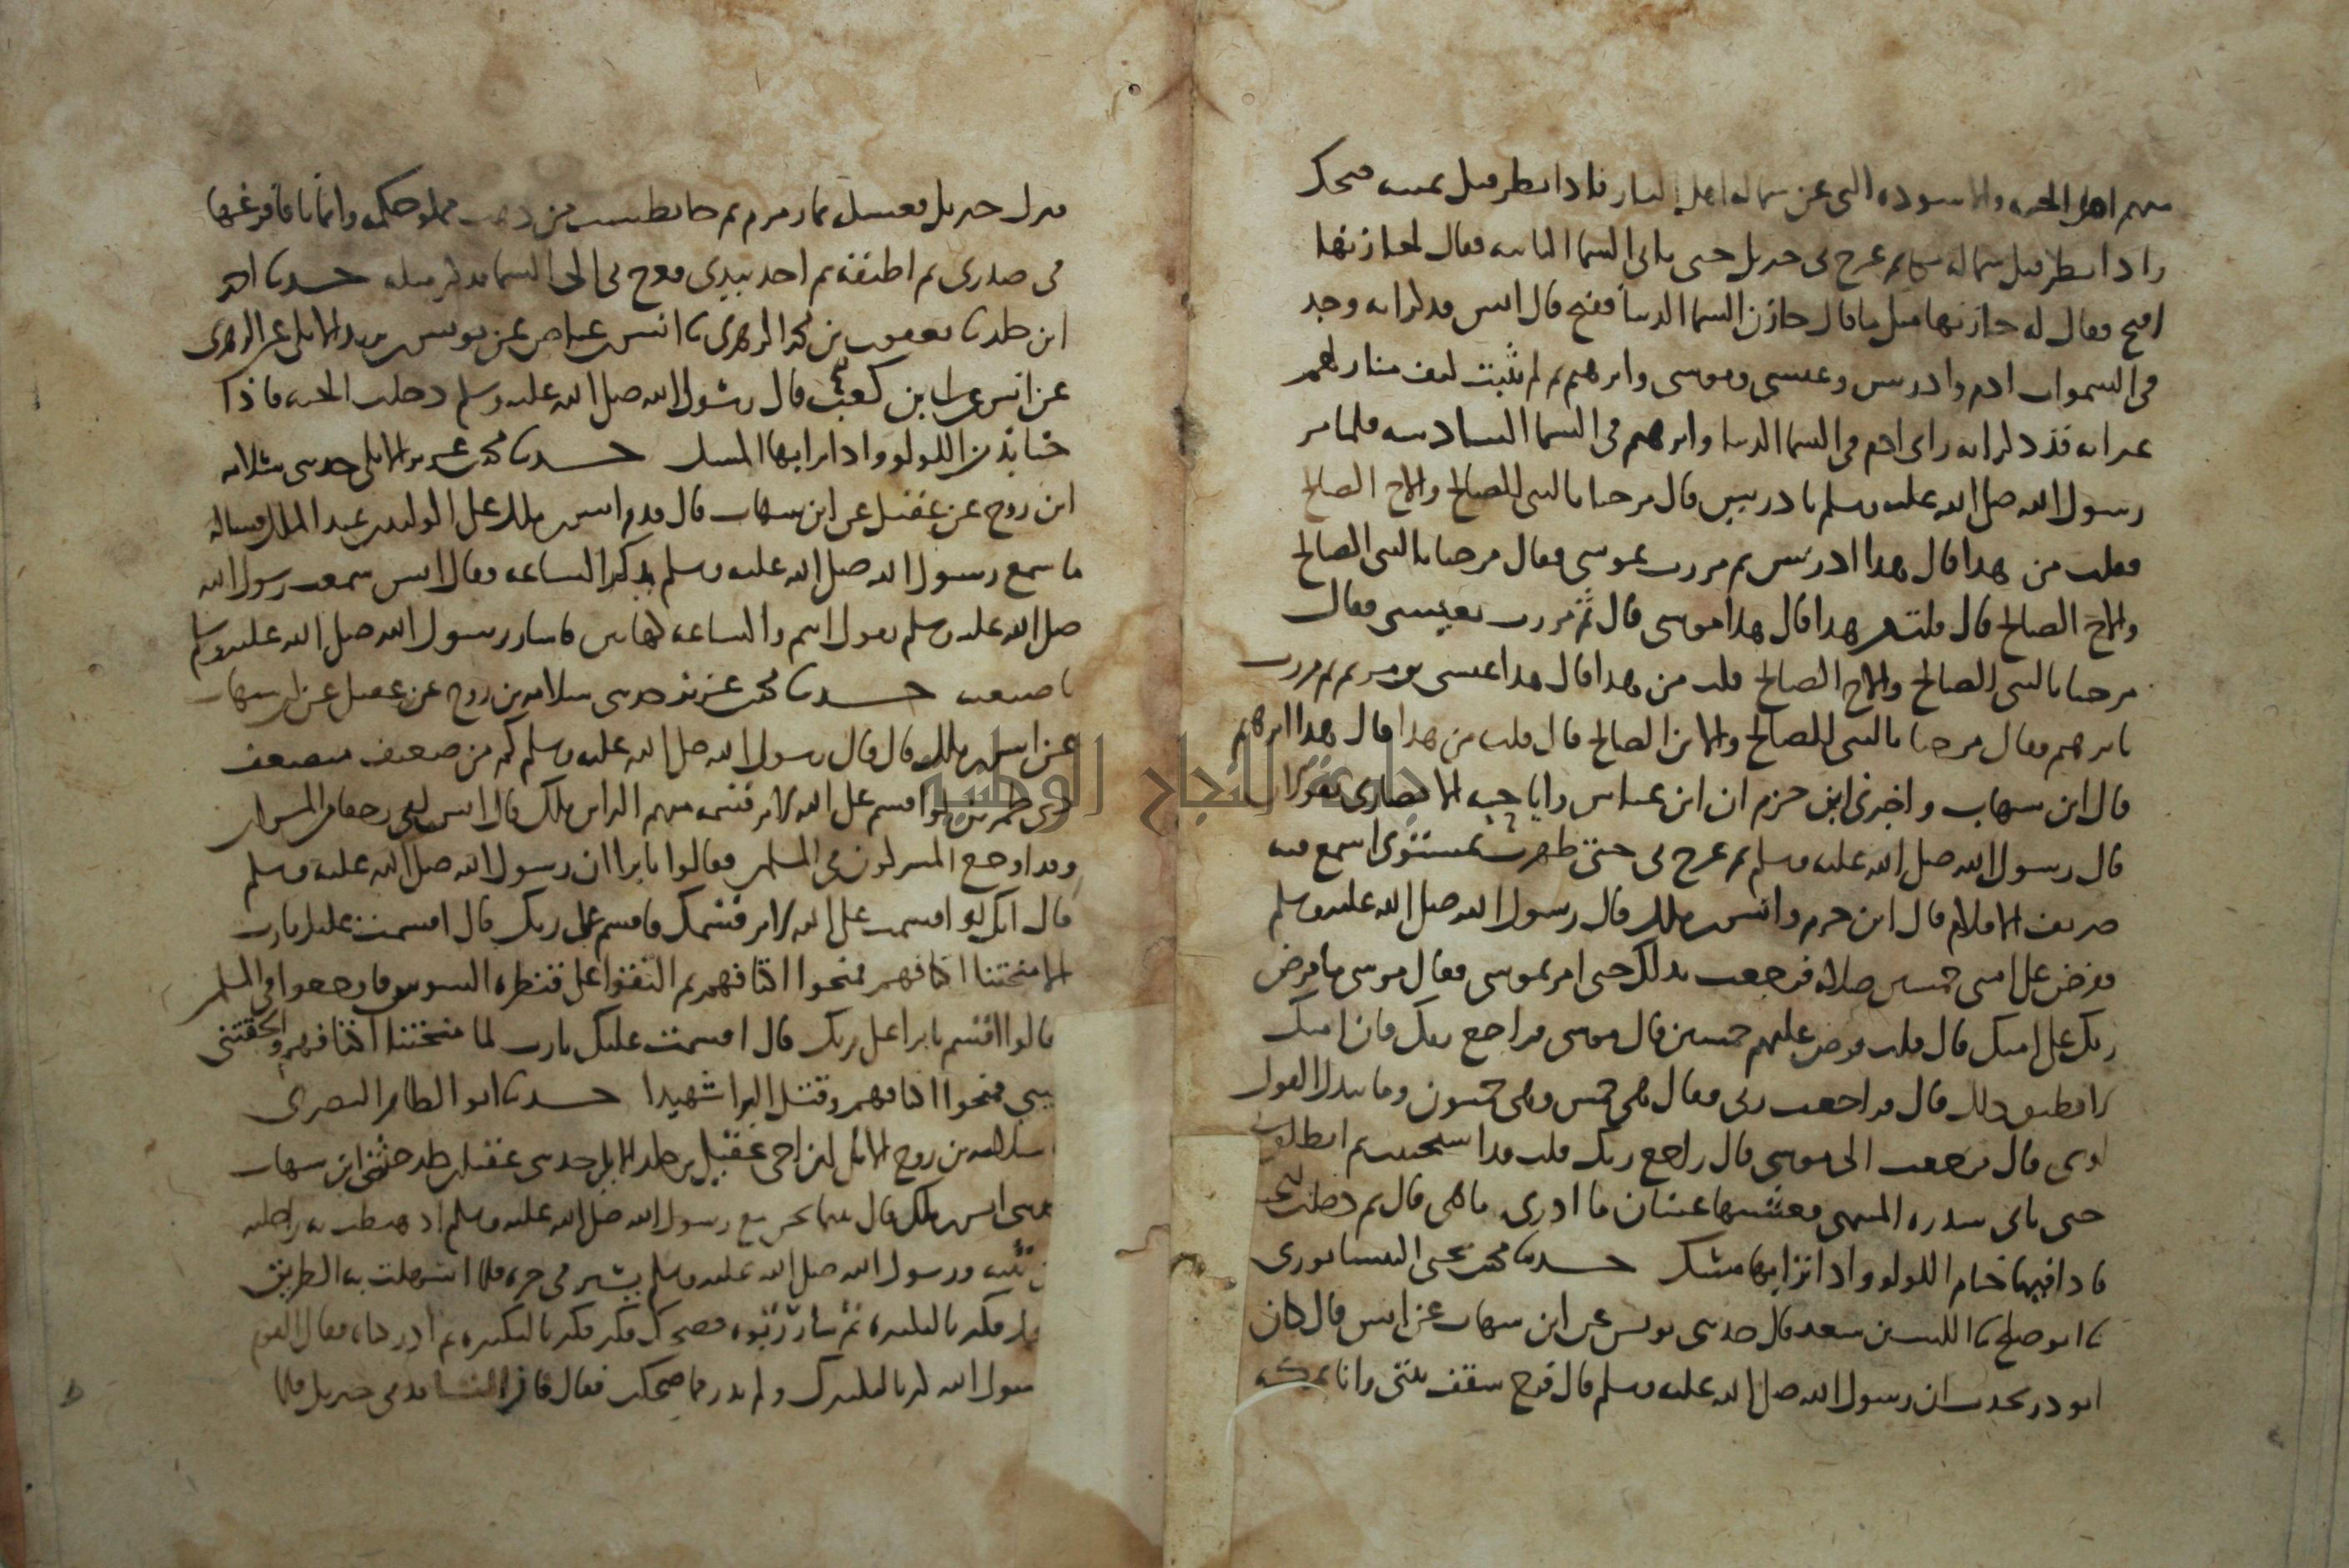 منهم اهل الجنه والاسوده التى عن شماله اهل النار فاذا نظر قبل يمينه ضحك
واذا نظر قبل شماله بكا ثم عرج بى جبريل حتى ياتى السما الثانيه فقال لخازنها
افتح فقال له خازنها مثل ما قال خازن السما الدنيا ففتح قال انس فذكر انه وجد
فى السموات ادم وادريس وعيسى وموسى وابرهيم ثم لم يثبت كيف منازلهم
غير انه قد ذكر انه راى ادم فى السما الدنيا وابرهيم فى السما السادسه فلما مر
رسول الله صلى الله عليه وسلم بادريس قال مرحبا بالنبى الصالح والاخ الصالح
فقلت من هذا قال هذا ادريس ثم مررت بموسى فقال مرحبا بالنبى الصالح
والاخ الصالح قال قلت من هذا قال هذا موسى قال ثم مررت بعيسى فقال
مرحبا بالنبى الصالح والاخ الصالح قلت من هذا قال هذا عيسى بن مريم ثم مررت
بابرهيم فقال مرحبا بالنبى الصالح والابن الصالح قال قلت من هذا قال هذا ابرهيم
قال ابن شهاب واخبرنى ابن حزم ان ابن عباس وابا حبه الانصارى يقولان
قال رسول الله صلى الله عليه وسلم ثم عرج بى حتى ظهرت بمستوى اسمع فيه
صريف الاقلام قال ابن حزم وانس بن ملك قال رسول الله صلى الله عليه وسلم
ففرض على امتى خمسين صلاه فرجعت بذلك حتى امر بموسى فقال موسى ما فرض
ربك على امتك قال قلت فرض عليهم خمسين قال موسى فراجع ربك فان امتك
لا تطيق ذلك قال فراجعت ربى فقال هى خمس وهى خمسون وما يبدل القول
لدى قال فرجعت الى موسى قال راجع ربك قلت قد استحييت ثم انطلق بى
حتى ياتى سدره المنتهى فغشيها غشان ما ادرى ما هى قال ثم دخلت الجنه
فاذا فيها خيام اللولو واذا ترابها مسك حدثنا محمد بن يحيى النيسابورى
نا ابو صلح نا الليث بن سعد قال حدثنى يونس عن ابن شهاب عن انس قال كان
ابو ذر يحدث ان رسول الله صلى الله عليه وسلم قال فرج سقف بيتى وانا بمكه
فنزل جبريل فغسل بما زمزم ثم جا بطست من ذهب مملو حكمه وايمانا فافرغها
فى صدرى ثم اطبقه ثم اخذ بيدى فعرج بى الى السما فذكر مثله حدثنا احمد
ابن خلد نا يعقوب بن محمد الزهرى نا انس بن عياض عن يونس بن يزيد الايلى عن الزهرى
عن انس عن ابى بن كعب قال رسول الله صلى الله عليه وسلم دخلت الجنه فاذا
جنابذ من اللولو واذا ترابها المسك حدثنا محمد بن عزيز الايلى حدثنى سلامه
ابن روح عن عقيل عن ابن شهاب قال قدم انس بن ملك على الوليد بن عبد الملك فساله
ما سمع رسول الله صلى الله عليه وسلم يذكر الساعه فقال انس سمعت رسول الله
صلى الله عليه وسلم يقول انتم والساعه كهاتين فاشار رسول الله صلى الله عليه وسلم
باصبعيه حدثنا محمد بن عزيز حدثنى سلامه بن روح عن عقيل عن ابن شهاب
عن انس بن ملك قال قال رسول الله صلى الله عليه وسلم كم من ضعيف متضعف
ذى طمرين لو اقسم على الله لابر قسمه منهم البرا بن ملك قال انس لقى زحفا من المشركين
وقد اوجع المشركون فى المسلمين فقالوا يا برا ان رسول الله صلى الله عليه وسلم
قال انك لو اقسمت على الله لابر قسمك فاقسم على ربك قال اقسمت عليك يا رب
لما منحتنا اكتافهم فمنحوا اكتافهم ثم التقوا على قنطره السوس فاوجعوا فى المسلمين
فالوا اقسم يا برا على ربك قال اقسمت عليك يا رب لما منحتنا اكتافهم والحقتنى
بنبيى فمنحوا اكتافهم وقتل البرا شهيدا حدثنا ابو الطاهر المصرى
سلامه بن روح الايلى ابن اخى عقيل بن خلد الايلى حدثنى عقيل بن خلد حدثنى ابن شهاب
حدثنى انس بن ملك قال بينما نحن مع رسول الله صلى الله عليه وسلم اذ هبطت به راحلته
من ثنيه ورسول الله صلى الله عليه وسلم يسير فى حره فلما استهلت به الطريق
ضحك فكبر بالتكبيره ثم سار رتوه فضحك فكبر فكبر بالتكبيره ثم ادركناه فقال القوم
رسول الله كبرنا لتكبيرك ولم ندر مما ضحكت فقال قاد الناقه لى جبريل فلما
جامعة النجاح الوطنية